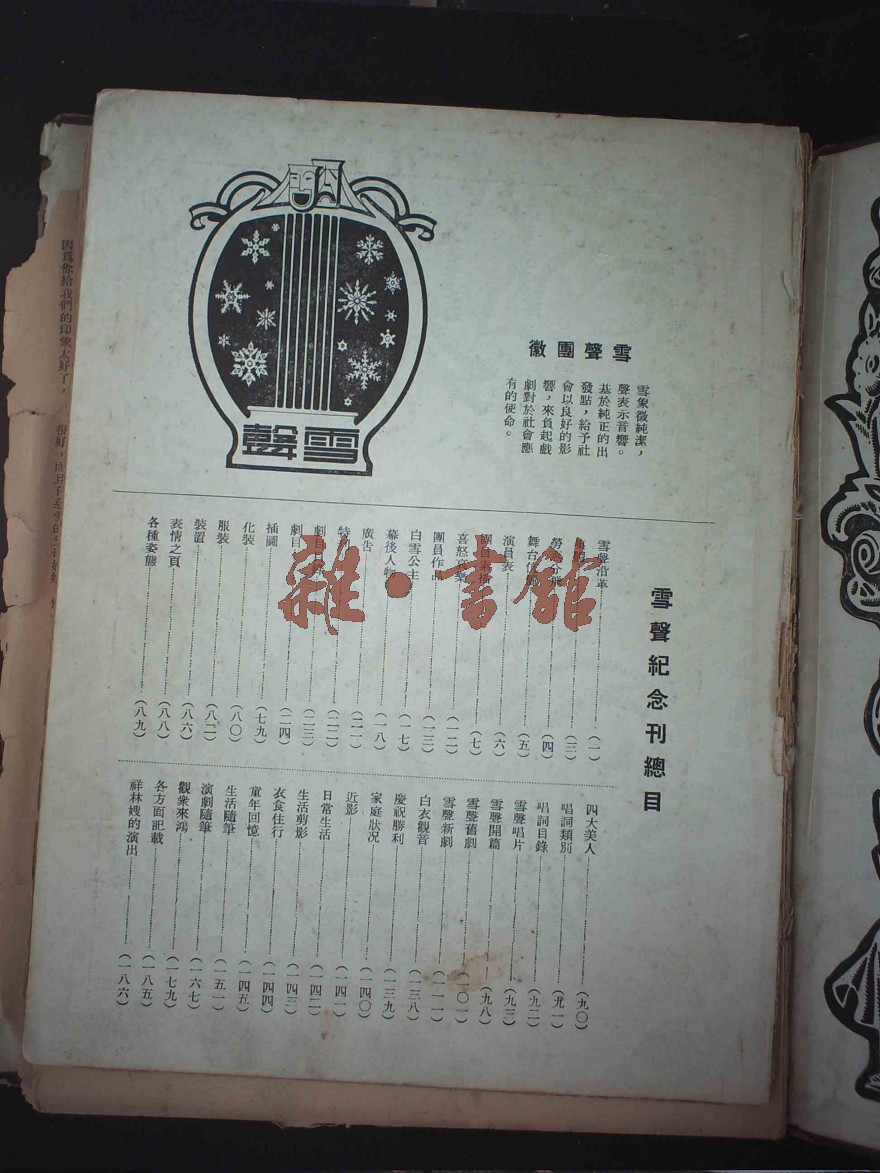 雪聲
雪聲團徽
雪象徵純潔，
聲表示音響。
基於純正的出
發點，給予社
會以良好的影
響，來負起戲
劇對於社會應
有的使命。
雪聲紀念刊總目
雪聲沿革（一）
（三）
勞 （四）
舞台 （五）
演員表（六）
團 （七）
喜怒 （一二）
團員作 （一三）
白雪公主（一七）
幕後人物（一八）
廣告（二一）
特 （二二）
劇 （二三）
劇目（二四）
插圖（七九）
化裝（八〇）
服裝（八二）
裝置（八六）
表情之頁（八八）
各種姿態（八九）
四大美人（九〇）
唱詞類別（九一）
唱詞目錄（九二）
雪聲唱片（九三）
雪聲開篇（九八）
雪聲舊劇（一〇一）
雪聲新劇（一一一）
白衣觀音（一三八）
慶祝勝利（一三九）
家庭狀况（一四〇）
近影（一四一）
日常生活（一四二）
生活剪影（一四三）
衣食住行（一四四）
童年回憶（一四五）
生活隨筆（一五一）
演劇隨筆（一六七）
觀衆來鴻（一七九）
各方面記載（一八五）
祥林嫂的演出（一八六）
因爲你給我們的印象太好了，
很好，
雜·書館